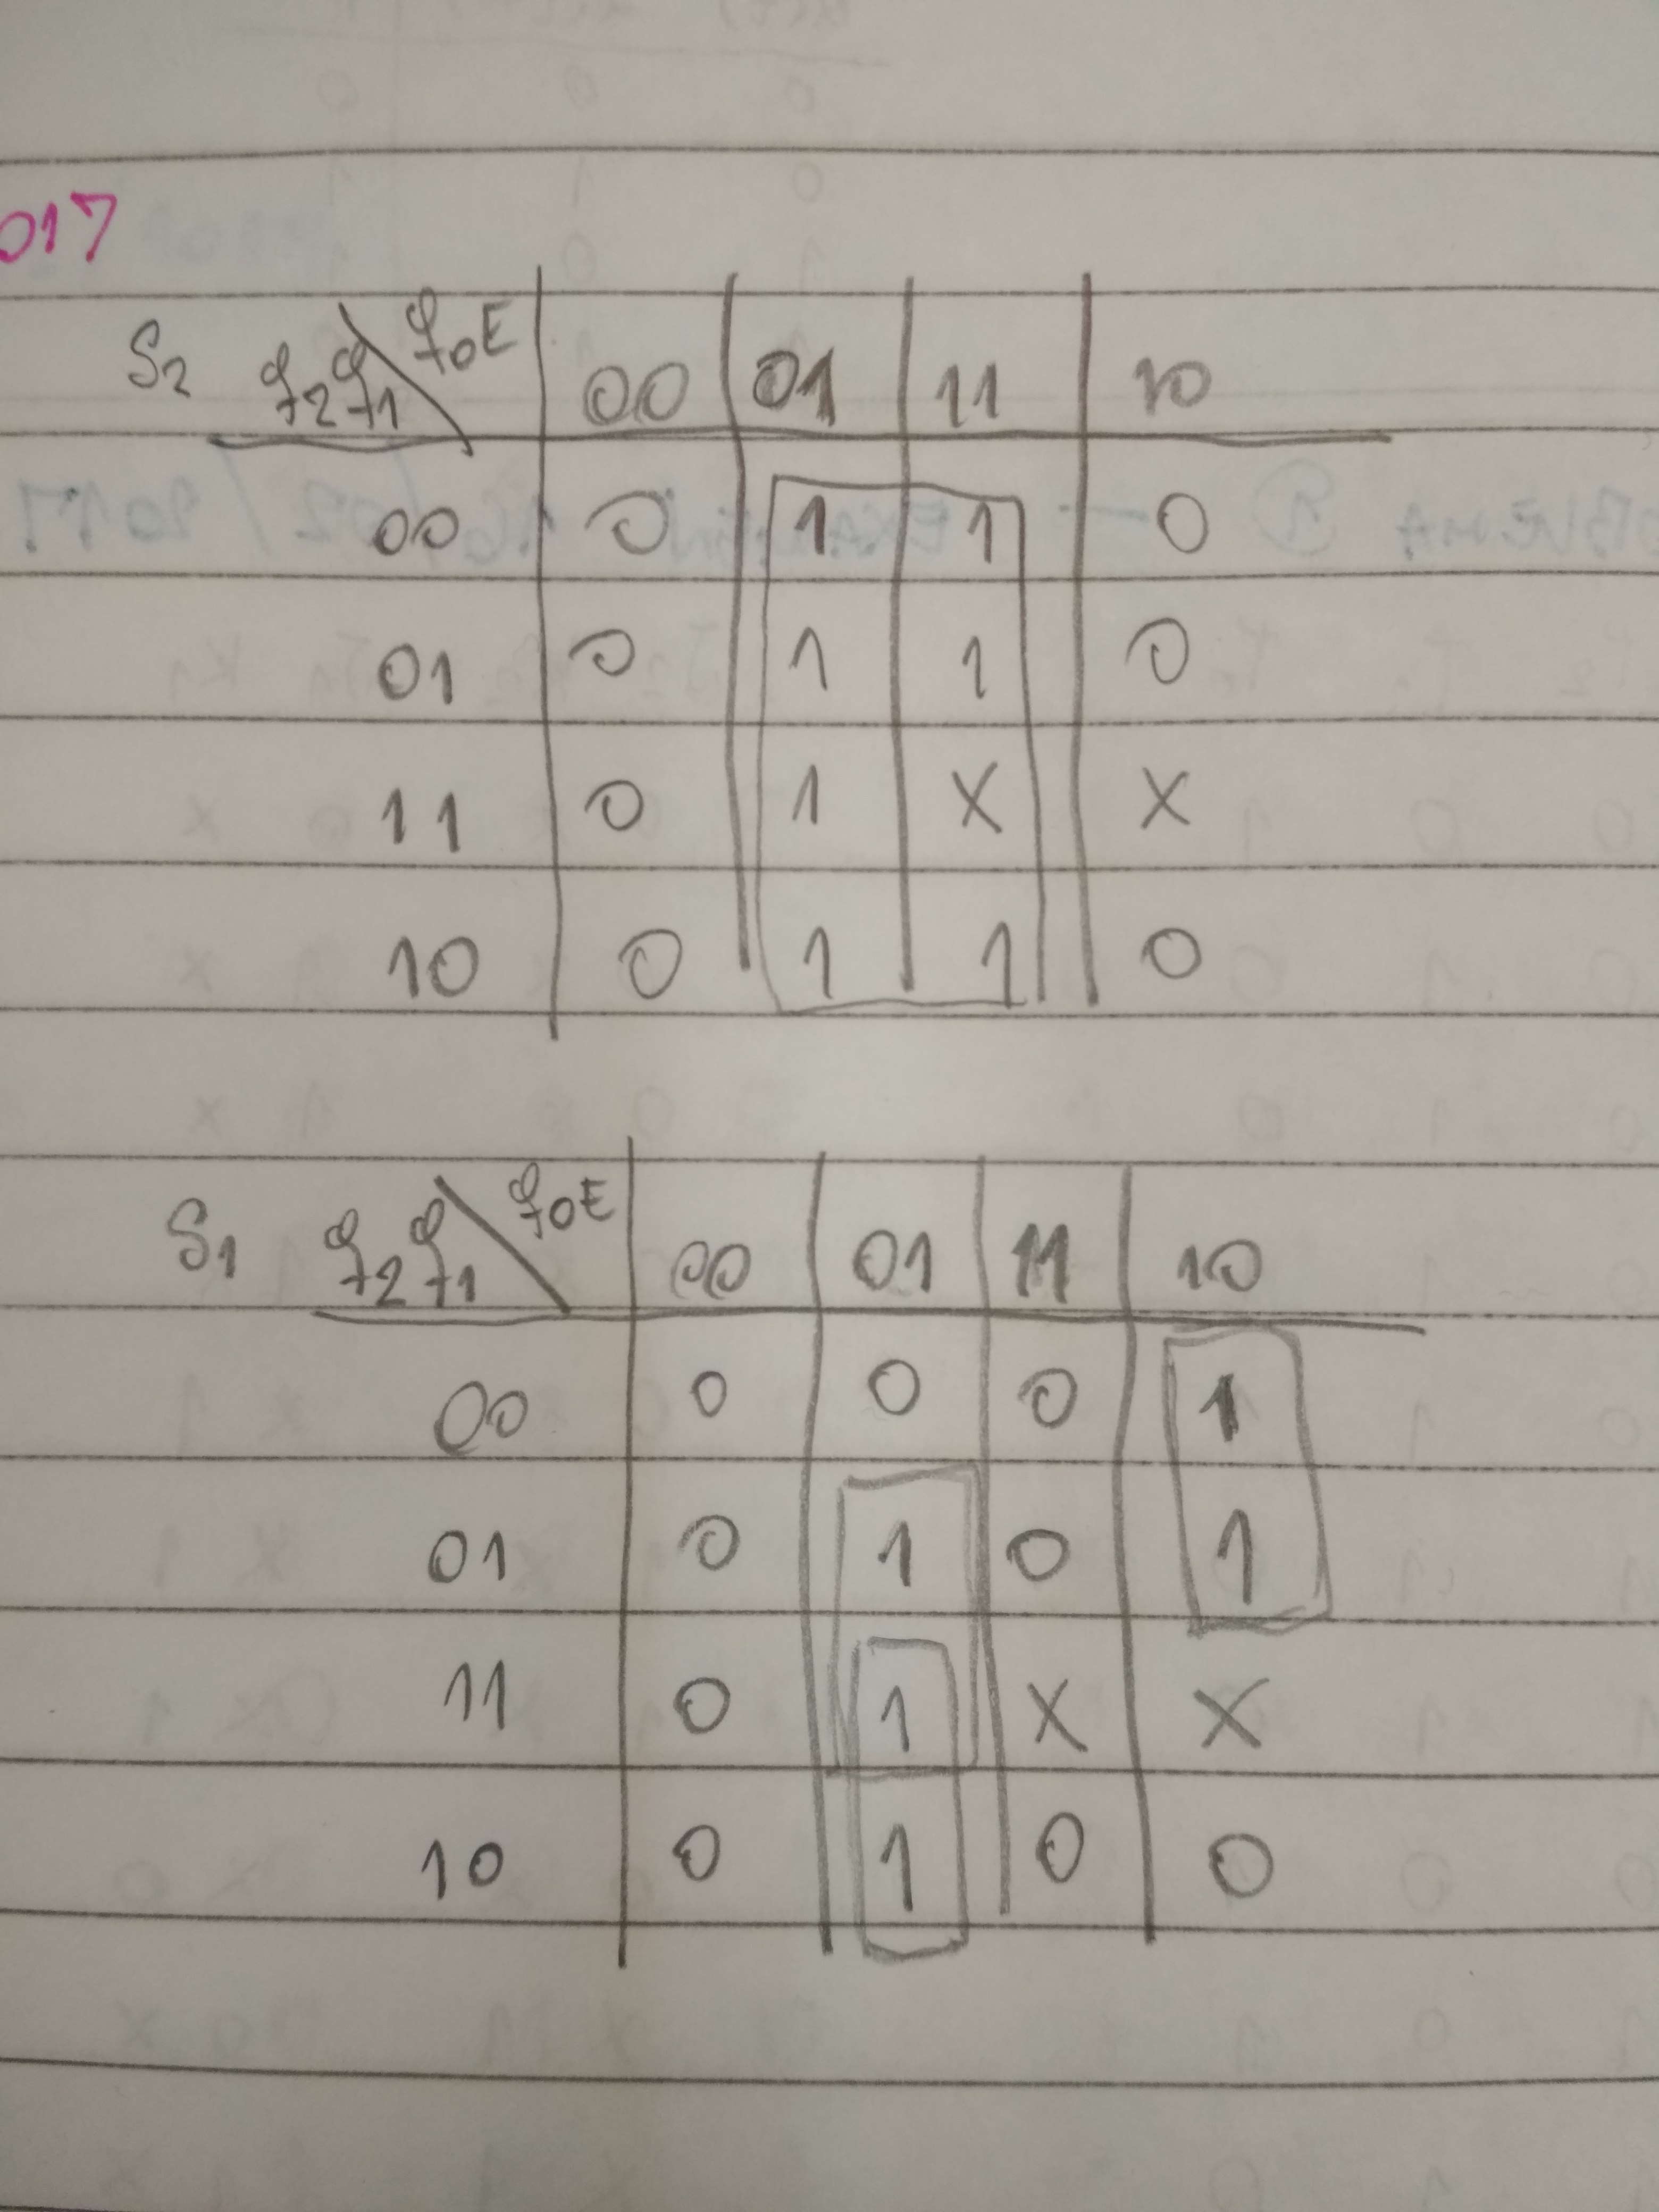 017
S2 q2q1 \ q0E 00 01 11 10
00 0 1 1 0
01 0 1 1 0
11 0 1 X X
10 0 1 1 0
S1 q2q1 \ q0E 00 01 11 10
00 0 0 0 1
01 0 1 0 1
11 0 1 X X
10 0 1 0 0